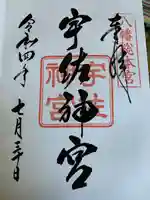 奉拝
八幡総本宮
宇佐神宮
宇佐
神宮
令和四年七月三十日